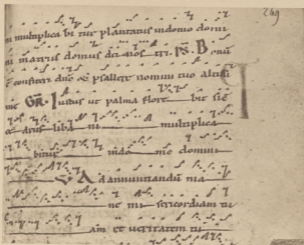 269
multiplica bi tur plantatus indomo domi
ni inatriis domus dei nos tri. PS. Bonũ
confiteri dño & psallere nomini tuo altissi
me GR. Iustus ut palma flore bit sic
ut ce drus liba ni multiplica
bitur indo mo domini
V. Ad annuntiandũ ma
ne mi sericordiam tu
am et veritatem tu